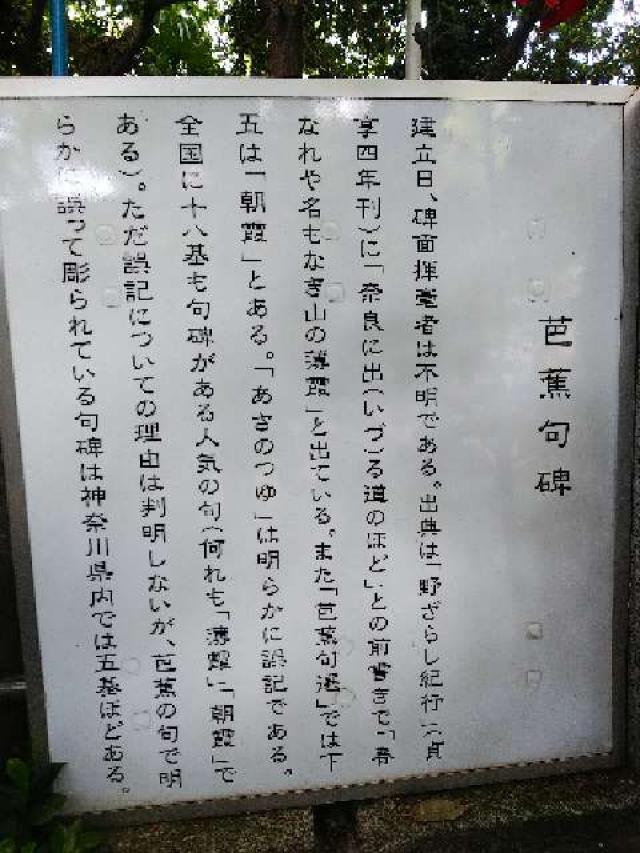 芭蕉句碑
建立日、碑面揮毫者は不明である。出典は「野ざらし紀行」(貞
享四年刊)に「奈良に出(いづ)る道のほど」との前書きで、「春
なれや名もなき山の薄霞」と出ている。また「芭蕉句選」では下
五は「朝霞」とある。「あさのつゆ」は明らかに誤記である。
全国に十八基も句碑がある人気の句(何れも「薄霞」、「朝霞」で
ある)。ただ誤記についての理由は判明しないが、芭蕉の句で明
らかに誤って彫られている句碑は神奈川県内では五基ほどある。